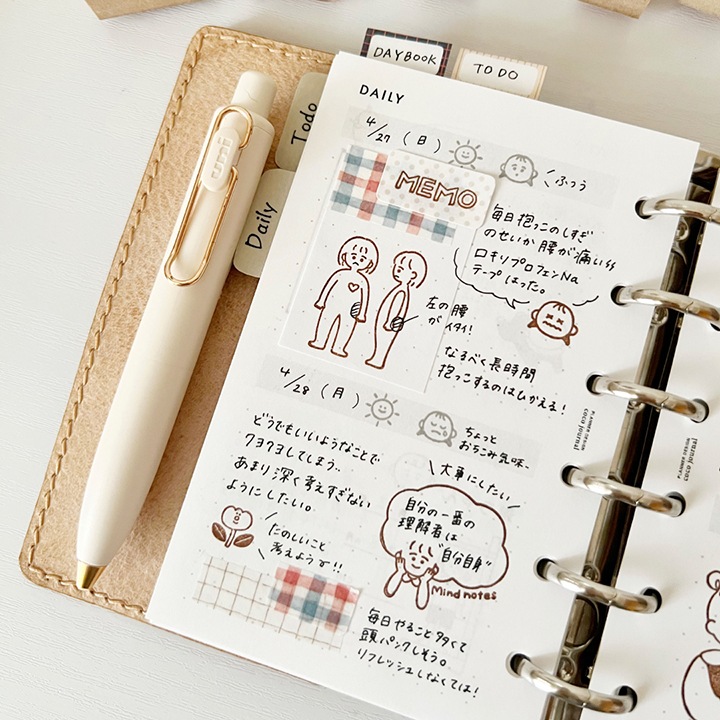 DAYBOOK
TO DO
Todo
Daily
uni
DAILY
4/27 (日)
ふつう
MEMO
毎日抱っこのしすぎ
のせいか腰が痛い
ロキソプロフェンNa
テープはった。
左の腰
がイタイ!
なるべく長時間
抱っこするのはひかえる!
4/28 (月)
ちょっと
おちこみ気味-
どうでもいいようなことで
クヨクヨしてしまう..
あまり深く考えすぎない
ようにしたい。
たのしいこと
考えよう!!
大事にしたい
自分の一番の
理解者は
"自分自身"
Mind notes
毎日やること多くて
頭パンクしそう。
リフレッシュしなくては!
PLANNER DESIGN
coco journal
PLANNER DESIGN
coco journal